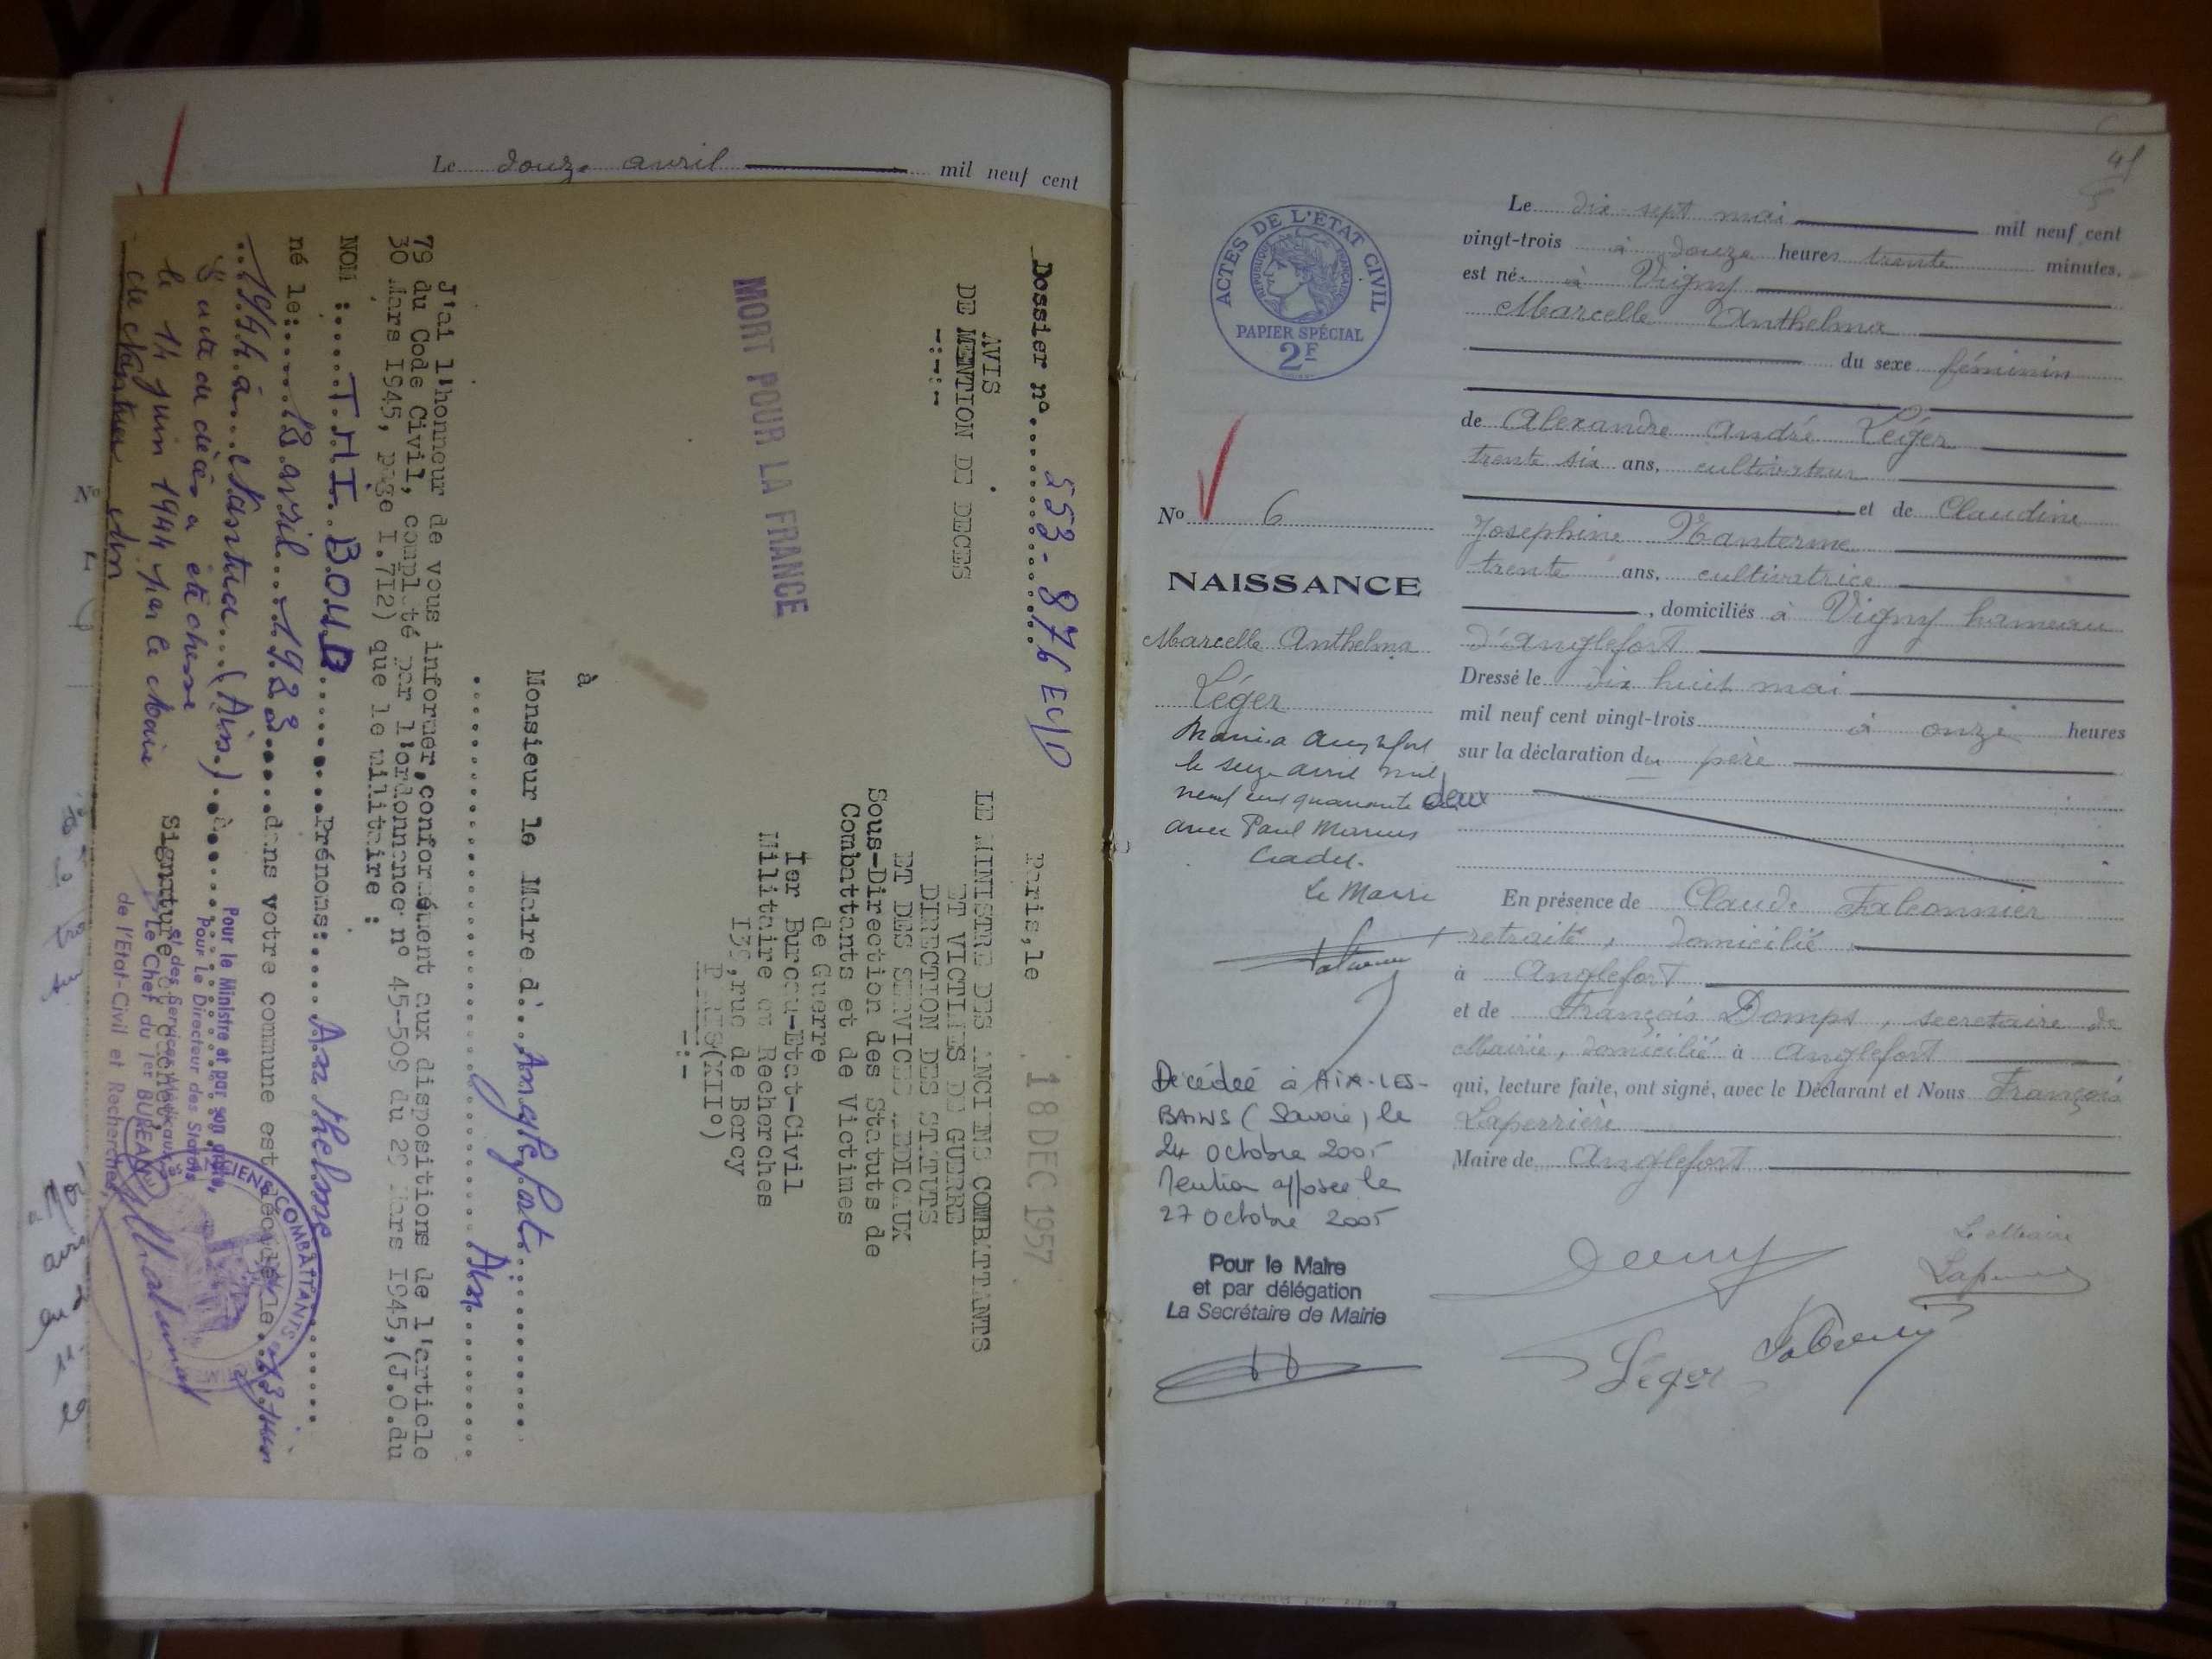 Le douze avril mil neuf cent
Dossier n° 553-876 EC/D
AVIS
DE MENTION DE DECES
-:-:-
MORT POUR LA FRANCE
Paris, le 18 DEC 1957
LE MINISTRE DES ANCIENS COMBATTANTS
ET VICTIMES DE GUERRE
DIRECTION DES STATUTS
ET DES SERVICES MEDICAUX
Sous-Direction des Statuts de
Combattants et de Victimes
de Guerre
Ier Bureau-Etat-Civil
Militaire et Recherches
139, rue de Bercy
PARIS(XII°)
-:-
à
Monsieur le Maire d'...Anglefort
Ain
J'ai l'honneur de vous informer, conformément aux dispositions de l'article
79 du Code Civil, complété par l'ordonnance n° 45-509 du 29 Mars 1945, (J.O. du
30 Mars 1945, page I.7I2) que le militaire :
NOM : THIBOUD Prénoms: Anthelme
né le: 12 avril 1923 dans votre commune est décédé le 13 juin
1944 à Nantua (Ain)
L'acte de décès a été dressé
le 14 juin 1944 par le Maire
de Nantua Ain
Signature et cachet,
Pour le Ministre et par son ordre,
Pour le Directeur des Statuts
et des Services Médicaux
Le Chef du 1er BUREAU
de l'Etat-Civil et Recherches,
ANCIENS COMBATTANTS
45
ACTES DE L'ÉTAT CIVIL
RÉPUBLIQUE FRANÇAISE
PAPIER SPÉCIAL
2F
N° 6
NAISSANCE
Marcelle Anthelma
Léger
Mariée à Anglefort
le seize avril mil
neuf cent quarante deux
avec Paul Marius
Cadet.
Le Maire
Décédée à AIX-LES-
BAINS (Savoie) le
24 octobre 2005
Mention apposée le
27 octobre 2005
Pour le Maire
et par délégation
La Secrétaire de Mairie
Le dix sept mai mil neuf cent
vingt-trois à douze heures trente minutes,
est né à Vigny
Marcelle Anthelma
du sexe féminin
de Alexandre André Léger
trente six ans, cultivateur
et de Claudine
Josephine Nanterme
trente ans, cultivatrice
, domiciliés à Vigny hameau
d'Anglefort
Dressé le dix huit mai
mil neuf cent vingt-trois à onze heures
sur la déclaration du père
En présence de Claude Falconnier
retraité, domicilié
à Anglefort
et de François Domps, secretaire de
Mairie, domicilié à Anglefort
qui, lecture faite, ont signé, avec le Déclarant et Nous François
Laperrière
Maire de Anglefort
Le Maire
Léger